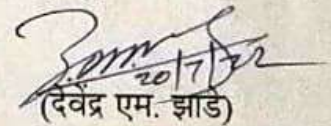 20/7/22
(देवेंद्र एम. झाडे)